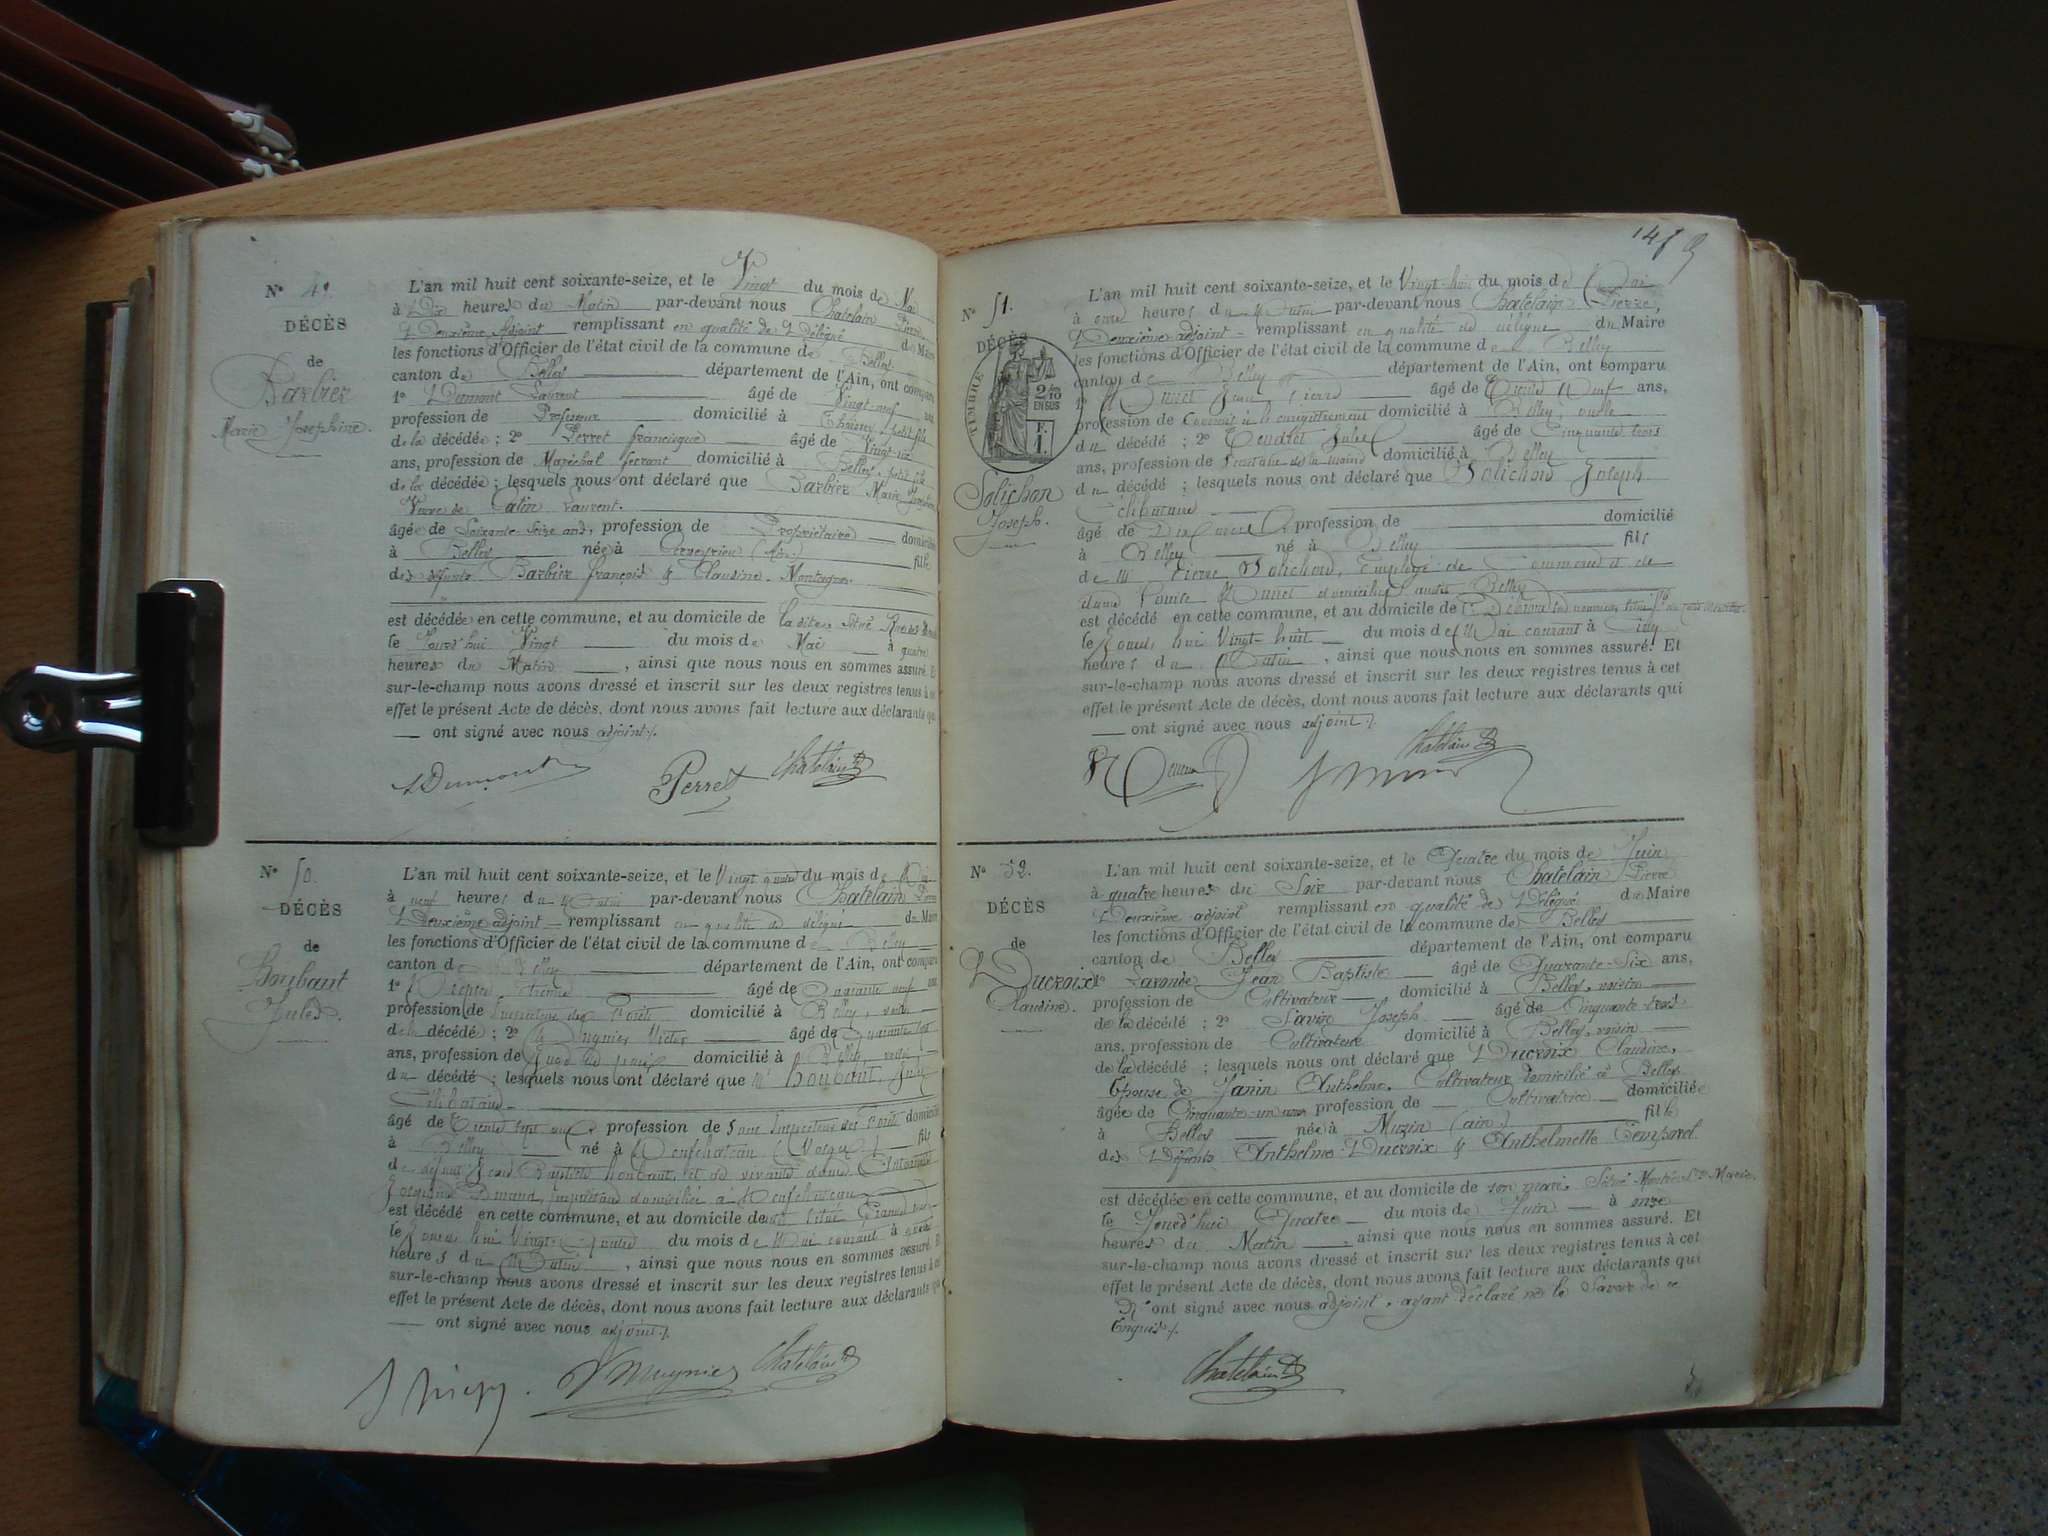 N° 49.
DÉCÈS
de
Barbier
Marie Josephine.
L'an mil huit cent soixante-seize, et le Vingt du mois de Mai
à Dix heures du Matin par-devant nous Chatelain Pierre
Deuxième Adjoint remplissant en qualité de Délégué du Maire
les fonctions d'Officier de l'état civil de la commune de Belley
canton de Belley département de l'Ain, ont comparu
1° Dumont Laurent âgé de Vingt-neuf ans
profession de Professeur domicilié à petit fils
de la décédée ; 2° Perret françisque âgé de Vingt
ans, profession de Maréchal ferrant domicilié à Belley, petit fils
de la décédée ; lesquels nous ont déclaré que Barbier Marie Josephine
Veuve de Catin Laurent.
âgée de Soixante-Seize ans, profession de Propriétaire domiciliée
à Belley née à (Ain) fille
des défunts Barbier françois & Claudine
est décédée en cette commune, et au domicile de la dite Situé
le Jourd'hui Vingt du mois de Mai à quatre
heures du Matin, ainsi que nous nous en sommes assuré. Et
sur-le-champ nous avons dressé et inscrit sur les deux registres tenus à cet
effet le présent Acte de décès, dont nous avons fait lecture aux déclarants qui
ont signé avec nous adjoint.
Dumont Perret Chatelain
N° 50.
DÉCÈS
de
Houbaut
Jules.
L'an mil huit cent soixante-seize, et le Vingt quatre du mois de Mai
à neuf heures du Matin par-devant nous Chatelain Pierre
Deuxième adjoint remplissant en qualité de délégué du Maire
les fonctions d'Officier de l'état civil de la commune de Belley
canton de Belley département de l'Ain, ont comparu
1° Etienne âgé de neuf ans
profession de des domicilié à Belley, voisin
de décédé ; 2° Mugnier Victor âgé de Quarante
ans, profession de domicilié à Belley, voisin
du décédé ; lesquels nous ont déclaré que Mr Houbaut, Jules
Célibataire
âgé de Trente sept ans profession de Sous Inspecteur des domicilié
à Belley né à Neufchateau (Vosges) fils
de défunt Jean Baptiste Houbaut, et de vivante dame
domiciliée à Neufchateau
est décédé en cette commune, et au domicile de situé Grande rue
le Jourd'hui Vingt-Quatre du mois de Mai courant à
heures du Matin, ainsi que nous nous en sommes assuré. Et
sur-le-champ nous avons dressé et inscrit sur les deux registres tenus à cet
effet le présent Acte de décès, dont nous avons fait lecture aux déclarants qui
ont signé avec nous adjoint.
Mugnier Chatelain
N° 51.
DÉCÈS
TIMBRE
2/10
EN SUS
F.
1.
Solichon
Joseph.
L'an mil huit cent soixante-seize, et le Vingt-huit du mois de Mai
à onze heures du Matin par-devant nous Chatelain Pierre,
Deuxième adjoint remplissant en qualité de délégué du Maire
les fonctions d'Officier de l'état civil de la commune de Belley
canton de Belley département de l'Ain, ont comparu
1° Jean Pierre âgé de Trente Neuf ans,
profession de à l'enregistrement domicilié à Belley, oncle
du décédé ; 2° Jules âgé de Cinquante trois
ans, profession de Secrétaire de la Mairie domicilié à Belley
du décédé ; lesquels nous ont déclaré que Solichon Joseph
Célibataire
âgé de profession de domicilié
à Belley né à Belley fils
de Mr Pierre Solichon, Employé de Commerce et de
dame Louise domiciliés à Belley
est décédé en cette commune, et au domicile de
le Jourd'hui Vingt-huit du mois de Mai courant à Cinq
heures du Matin, ainsi que nous nous en sommes assuré. Et
sur-le-champ nous avons dressé et inscrit sur les deux registres tenus à cet
effet le présent Acte de décès, dont nous avons fait lecture aux déclarants qui
ont signé avec nous adjoint.
Chatelain
N° 52.
DÉCÈS
de
Ducroix
Claudine.
L'an mil huit cent soixante-seize, et le Quatre du mois de Juin
à quatre heures du Soir par-devant nous Chatelain Pierre
Deuxième adjoint remplissant en qualité de Délégué du Maire
les fonctions d'Officier de l'état civil de la commune de Belley
canton de Belley département de l'Ain, ont comparu
1° Jean Baptiste âgé de Quarante-Six ans,
profession de Cultivateur domicilié à Belley, voisin
de la décédée ; 2° Savin Joseph âgé de Cinquante trois
ans, profession de Cultivateur domicilié à Belley, voisin
de la décédée ; lesquels nous ont déclaré que Ducroix Claudine,
Epouse de Janin Anthelme, Cultivateur domicilié à Belley
âgée de Cinquante-un ans profession de Cultivatrice domiciliée
à Belley née à Muzin (ain) fille
des Défunts Anthelme Ducroix & Anthelmette Temporel
est décédée en cette commune, et au domicile de son mari, Situé Montée Ste Marie
le Jourd'hui Quatre du mois de Juin à onze
heures du Matin, ainsi que nous nous en sommes assuré. Et
sur-le-champ nous avons dressé et inscrit sur les deux registres tenus à cet
effet le présent Acte de décès, dont nous avons fait lecture aux déclarants qui
N'ont signé avec nous adjoint, ayant déclaré ne le Savoir de ce
Enquis.
Chatelain